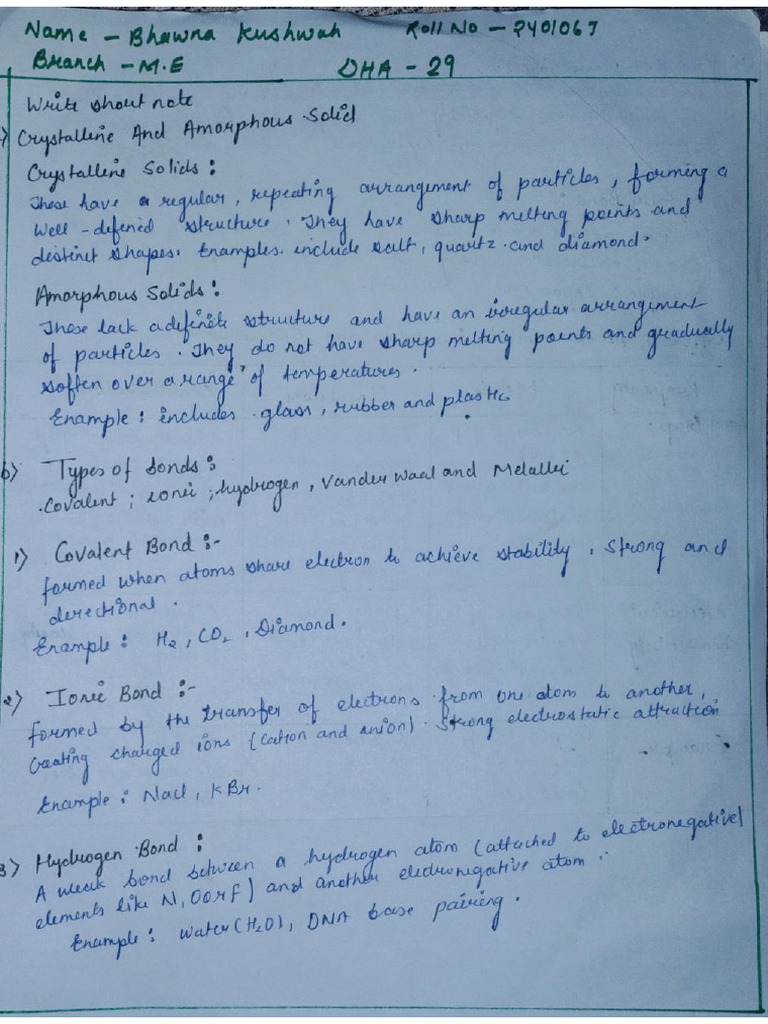 Name - Bhawna Kushwah Roll No - 2401067
Branch - M.E DHA - 29
Write short note
a) Crystalline And Amorphous Solid
Crystalline Solids :
These have a regular, repeating arrangement of particles, forming a
well-defined structure. They have sharp melting points and
distinct shapes. Examples include salt, quartz and diamond.
Amorphous Solids :
These lack a definite structure and have an irregular arrangement
of particles. They do not have sharp melting points and gradually
soften over a range of temperatures.
Example : includes glass, rubber and plastic
b) Types of bonds :
Covalent ; ionic ; hydrogen, Vander Waal and Metallic
1) Covalent Bond :-
formed when atoms share electron to achieve stability. Strong and
directional.
Example : H₂, CO₂, Diamond.
2) Ionic Bond :-
formed by the transfer of electrons from one atom to another,
creating charged ions (cation and anion). Strong electrostatic attraction
Example : Nacl, KBr.
3) Hydrogen Bond :
A weak bond between a hydrogen atom (attached to electronegative
elements like N, O or F) and another electronegative atom.
Example : water (H₂O), DNA base pairing.